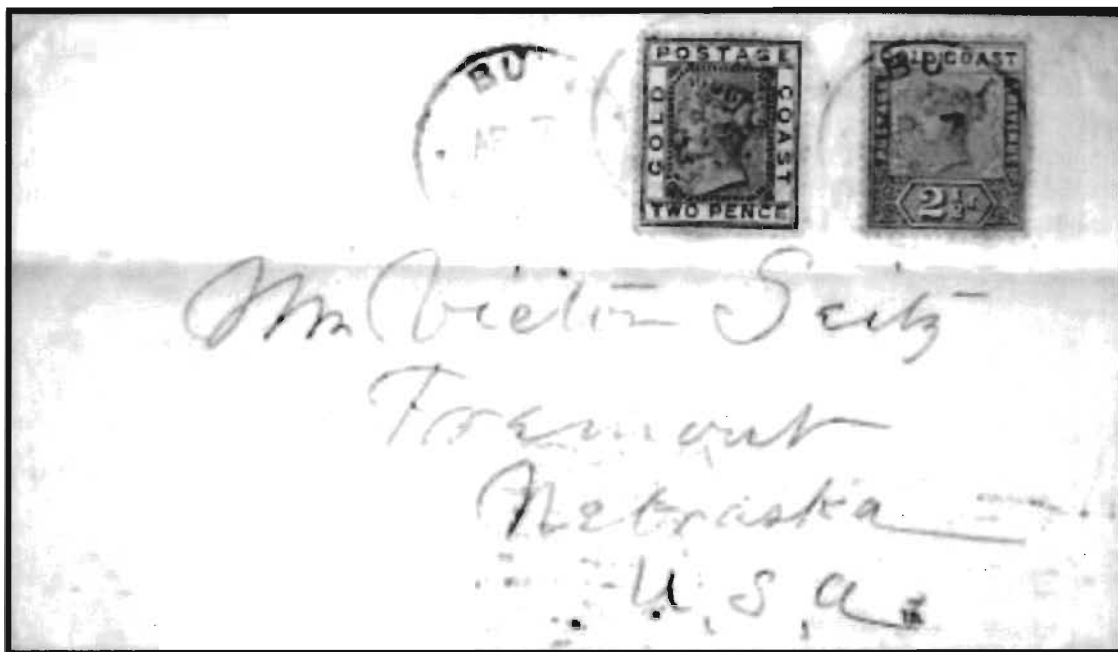 BU
POSTAGE
GOLD COAST
TWO PENCE
BU
GOLD COAST
2½d
Mr Victor Seitz
Fremont
Nebraska
U.S.A.